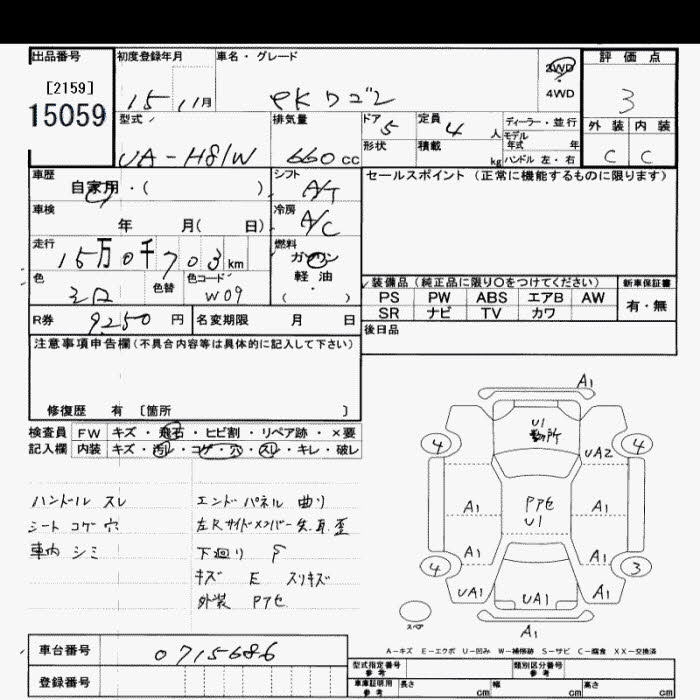 出品番号 初度登録年月 車名・グレード 評価点
[2159] 15 11月 eKワゴン 2WD 4WD 3
15059
型式 排気量 ドア 定員 ディーラー・並行 外装 内装
UA-H81W 660cc 5 4人 モデル年式 年 C C
形状 積載 kg ハンドル 左・右
車歴 自家用・( ) シフト A/T セールスポイント(正常に機能するものに限ります)
車検 年 月( 日) 冷房 A/C
走行 15万0千703km 燃料 ガソリン
色 シロ 色替 色コード W09 軽油 ( )
装備品(純正品に限り○をつけてください) 新車保証書
PS PW ABS エアB AW 有・無
SR ナビ TV カワ
R券 9250円 名変期限 月 日
後日品
注意事項申告欄(不具合内容等は具体的に記入して下さい)
修復歴 有 〔箇所 〕
検査員 FW キズ・飛石・ヒビ割・リペア跡・×要
記入欄 内装 キズ・汚レ・コゲ・穴・スレ・キレ・破レ
ハンドル スレ
シート コゲ 穴
車内 シミ
エンドパネル 曲り
左Rサイドメンバー
下廻り S
キズ E スリキズ
外装 Pアセ
A1
U1
4 4
UA2
A1 Pアセ A1
U1
A1 A1
4 3
UA1 UA1 A1
スペア A1
A-キズ E-エクボ U-凹み W-補修跡 S-サビ C-腐食 XX-交換済
車台番号 0715686
登録番号
型式指定番号 参考 類別区分番号 参考
車庫証明用 参考 長さ cm 幅 cm 高さ cm